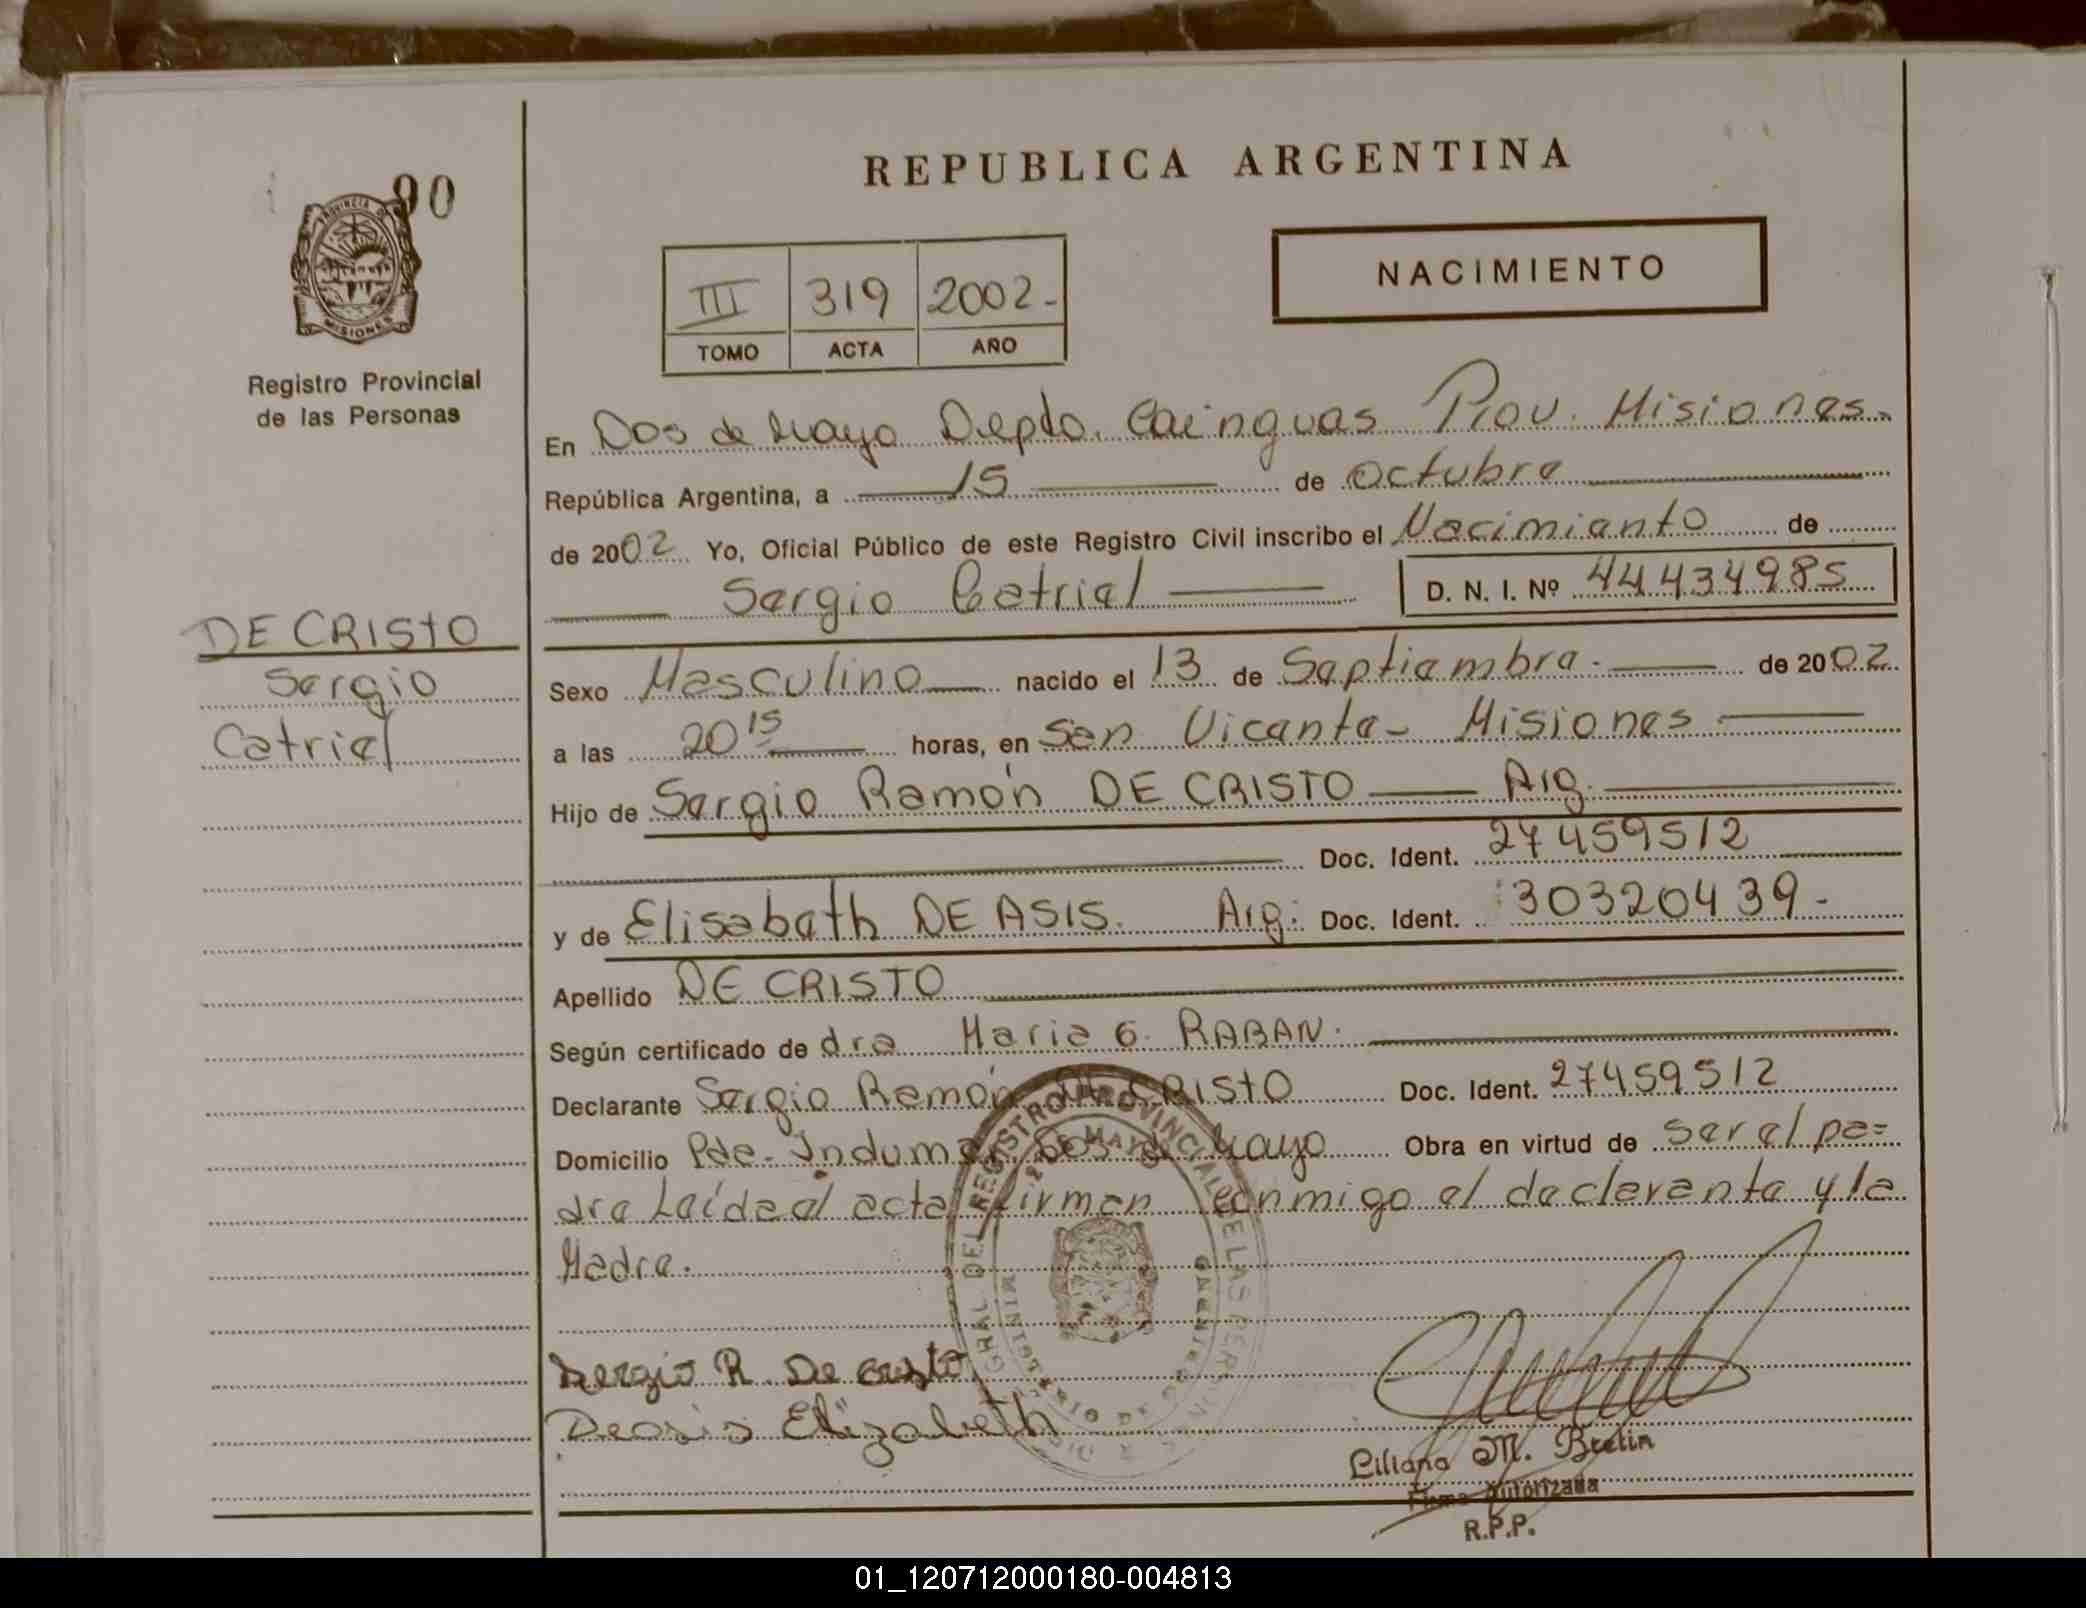 90
PROVINCIA DE
MISIONES
Registro Provincial
de las Personas
REPUBLICA ARGENTINA
III 319 2002-
TOMO ACTA AÑO
NACIMIENTO
En Dos de Mayo Depto. Cainguas Prov. Misiones.
República Argentina, a 15 de octubre
de 2002 Yo, Oficial Público de este Registro Civil inscribo el Nacimiento de
Sergio Catriel D. N. I. Nº 44434985
DE CRISTO
Sergio
Catriel
Sexo Masculino nacido el 13 de Septiembre. de 2002
a las 20 15 horas, en San Vicente - Misiones
Hijo de Sergio Ramón DE CRISTO Arg.
Doc. Ident. 27459512
y de Elisabeth DE ASIS. Arg: Doc. Ident. 30320439-
Apellido DE CRISTO
Según certificado de dra Maria G. RABAN.
Declarante Sergio Ramón DE CRISTO Doc. Ident. 27459512
Domicilio Pde. Indumar Dos de Mayo Obra en virtud de ser el pa=
dre Leída el acta firman conmigo el declarante y la
Madre.
Sergio R. De cristo
Deasis Elizabeth
Liliana M. Bretin
Firma Autorizada
R.P.P.
01_120712000180-004813